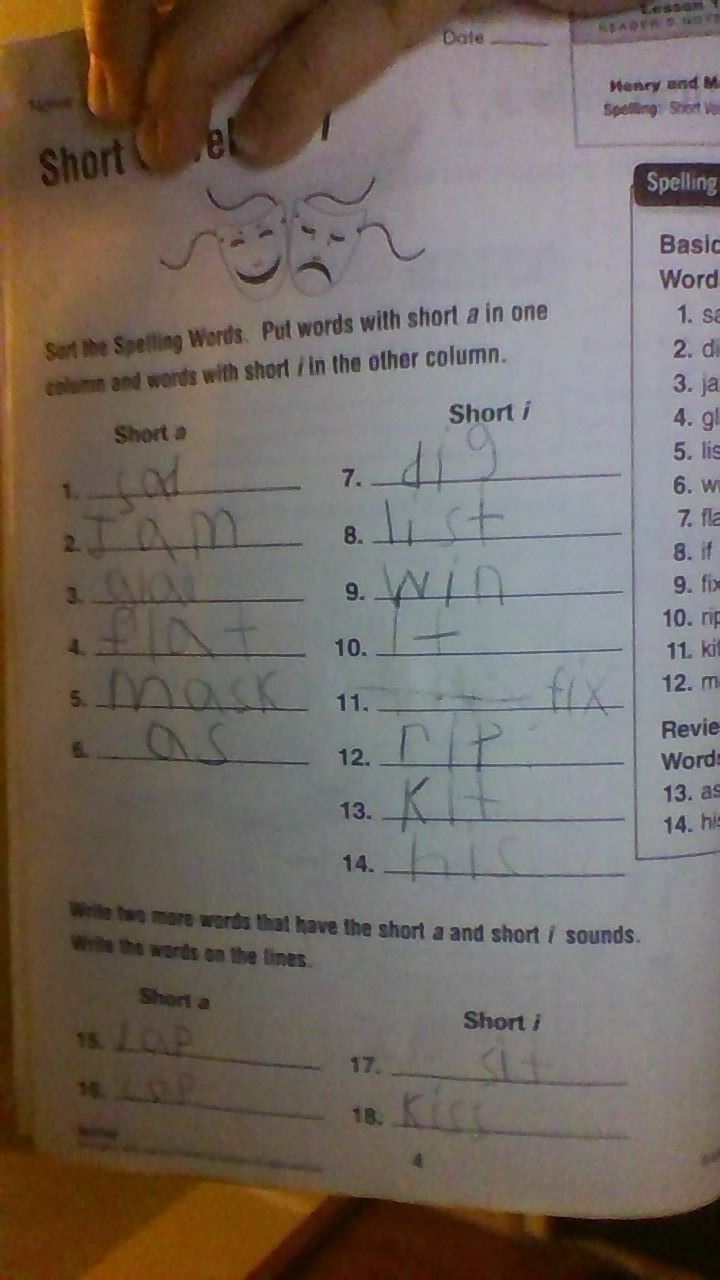 Date
Lesson 1
READER'S NOT
Name
Henry and M
Spelling: Short Vo
Short
Spelling
Basic
Word
1. sa
2. di
3. ja
4. gl
5. lis
6. wi
7. fla
8. if
9. fix
10. rip
11. kit
12. m
Revie
Words
13. as
14. his
Sort the Spelling Words. Put words with short a in one
column and words with short i in the other column.
Short a
Short i
1. sad
2. Jam
3. glad
4. flat
5. mask
6. as
7. dig
8. list
9. win
10. It
11. fix
12. rip
13. Kit
14. his
Write two more words that have the short a and short i sounds.
Write the words on the lines.
Short a
Short i
15. Lap
16. cap
17. sit
18. Kiss
4